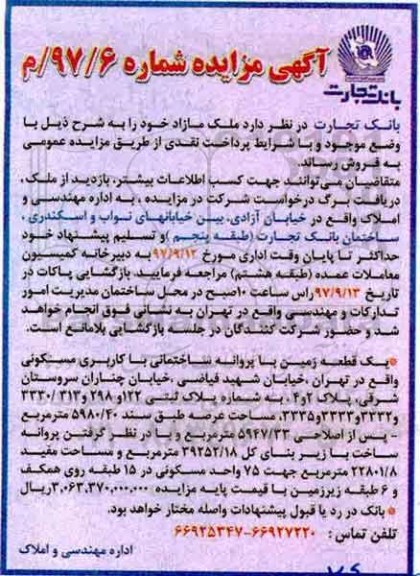 بانک تجارت
آگهی مزایده شماره ۹۷/۶/م
بانک تجارت در نظر دارد ملک مازاد خود را به شرح ذیل با
وضع موجود و با شرایط پرداخت نقدی از طریق مزایده عمومی
به فروش رساند.
متقاضیان می‌توانند جهت کسب اطلاعات بیشتر، بازدید از ملک ،
دریافت برگ درخواست شرکت در مزایده ، به اداره مهندسی و
املاک واقع در خیابان آزادی، بین خیابانهای نواب و اسکندری ،
ساختمان بانک تجارت (طبقه پنجم )و تسلیم پیشنهاد خود
حداکثر تا پایان وقت اداری مورخ ۹۷/۹/۱۲ به دبیرخانه کمیسیون
معاملات عمده (طبقه هشتم) مراجعه فرمایید. بازگشایی پاکات در
تاریخ ۹۷/۹/۱۳ راس ساعت ۱۰صبح در محل ساختمان مدیریت امور
تدارکات و مهندسی واقع در تهران به نشانی فوق انجام خواهد
شد و حضور شرکت کنندگان در جلسه بازگشایی بلامانع است.
●یک قطعه زمین با پروانه ساختمانی با کاربری مسکونی
واقع در تهران ،خیابان شهید فیاضی ،خیابان چناران سروستان
شرقی، پلاک ۲و۴، به شماره پلاک ثبتی ۱۲۲و ۲۹۸ و۳۱۳ /۳۳۳۰
و۳۳۳۲و۳۳۳۳و۳۳۳۵، مساحت عرصه طبق سند ۵۹۸۰/۴۰ مترمربع
- پس از اصلاحی ۵۹۴۷/۳۳ مترمربع و با در نظر گرفتن پروانه
ساخت با زیر بنای کل ۳۹۲۵۲/۱۸ مترمربع و مساحت مفید
۲۲۸۰۱/۸ مترمربع جهت ۷۵ واحد مسکونی در ۱۵ طبقه روی همکف
و ۶ طبقه زیرزمین با قیمت پایه مزایده ۳,۰۶۳,۳۷۰,۰۰۰,۰۰۰ریال
●بانک در رد یا قبول پیشنهادات واصله مختار خواهد بود.
تلفن تماس : ۶۶۹۲۷۲۲۰-۶۶۹۲۵۳۴۷
اداره مهندسی و املاک